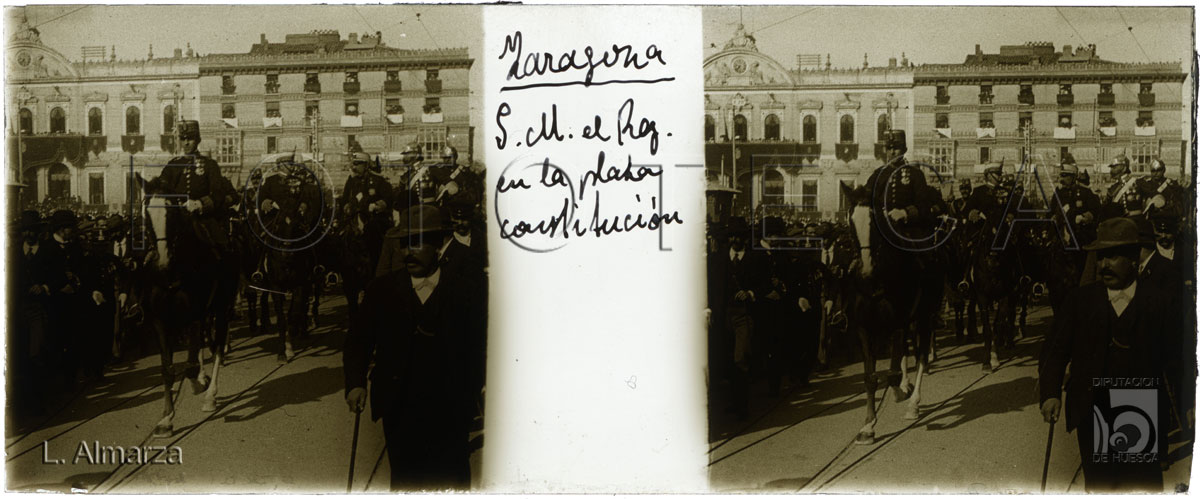 Zaragoza
S. M. el Rey.
en la plaza
constitución
FOTOTECA
L. Almarza
DIPUTACIÓN
DE HUESCA